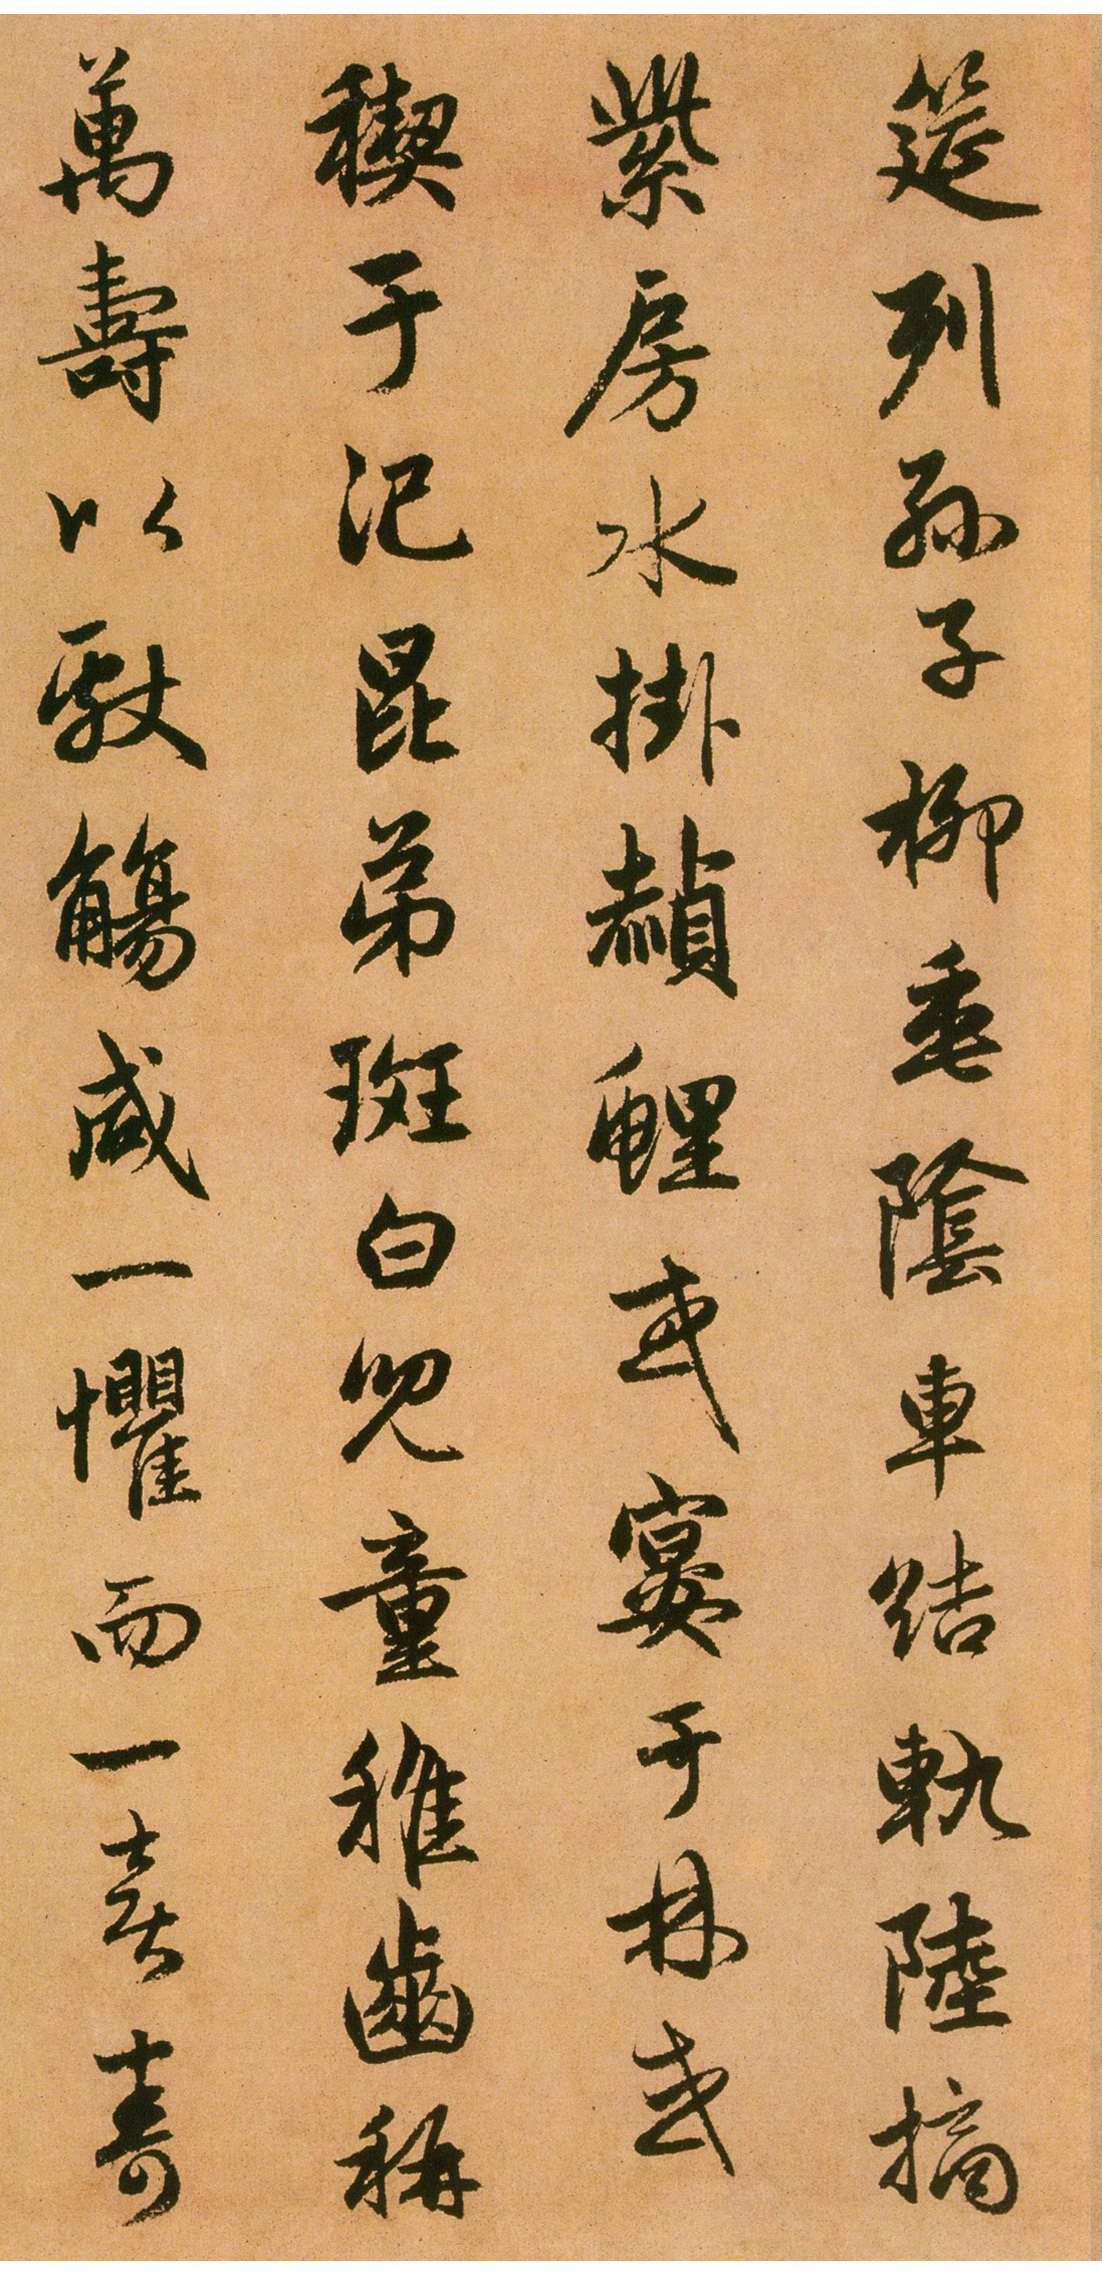 筵列孫子柳垂陰車結軌陸擿
紫房水掛赬鯉或宴于林或
禊于汜昆弟斑白兒童稚齒稱
萬壽以獻觴咸一懼而一喜壽